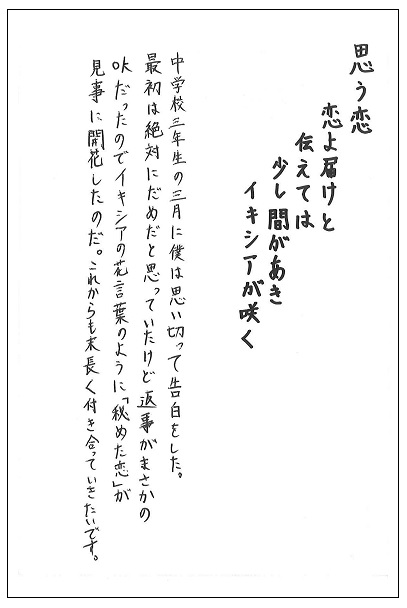 思う恋
恋よ届けと
伝えては
少し間があき
イキシアが咲く
中学校三年生の三月に僕は思い切って告白をした。
最初は絶対にだめだと思っていたけど返事がまさかの
OKだったのでイキシアの花言葉のように「秘めた恋」が
見事に開花したのだ。これからも末長く付き合っていきたいです。